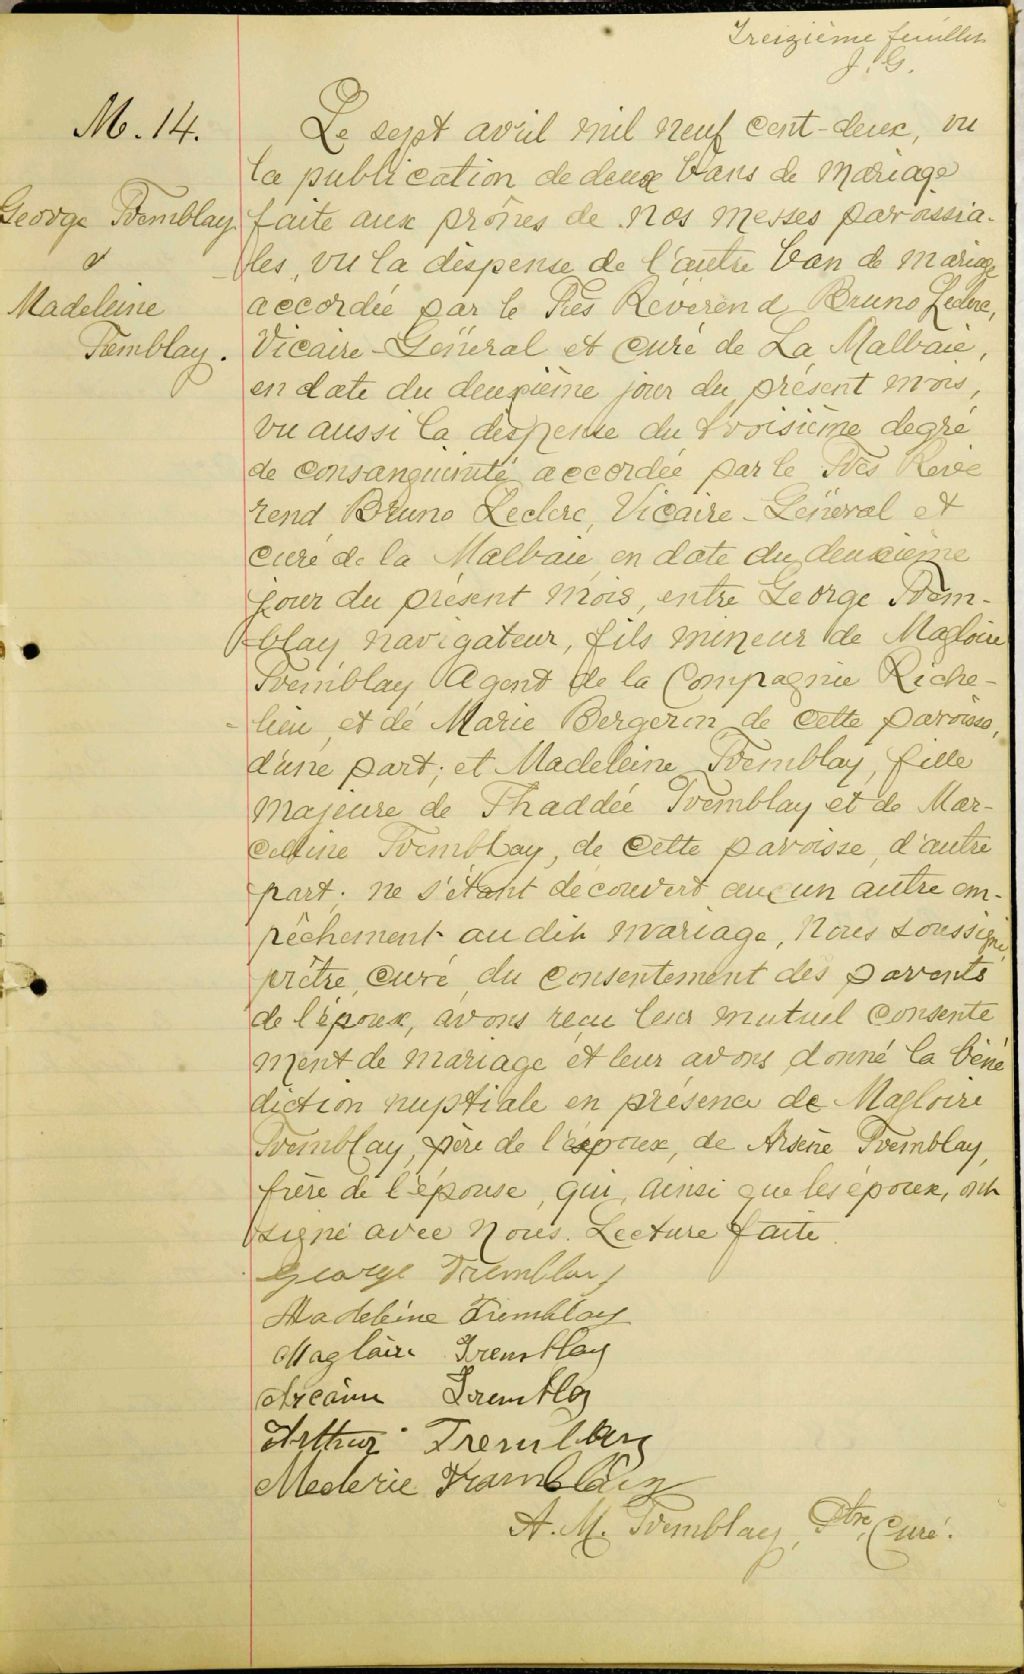 Treizième feuillet
J. G.
M. 14.
George Tremblay
&
Madeleine
Tremblay.
Le sept avril mil neuf cent-deux, vu
la publication de deux bans de mariage
faite aux prônes de nos messes paroissia-
les, vu la dispense de l'autre ban de mariage
accordée par le Très Révérend Bruno Leclerc,
Vicaire-Général et curé de La Malbaie,
en date du deuxième jour du présent mois,
vu aussi la dispense du troisième degré
de consanguinité accordée par le Très Révé
rend Bruno Leclerc, Vicaire-Général et
curé de la Malbaie, en date du deuxième
jour du présent mois, entre George Trem-
blay navigateur, fils mineur de Magloire
Tremblay Agent de la Compagnie Riche-
-lieu, et de Marie Bergeron de cette paroisse,
d'une part; et Madeleine Tremblay, fille
majeure de Thaddée Tremblay et de Mar-
celline Tremblay, de cette paroisse, d'autre
part; ne s'étant découvert aucun autre em-
pêchement au dit mariage, Nous soussigné,
prêtre, curé, du consentement des parents
de l'époux, avons reçu leur mutuel consente
ment de mariage et leur avons donné la béné
diction nuptiale en présence de Magloire
Tremblay, père de l'époux, de Arsène Tremblay,
frère de l'épouse, qui, ainsi que les époux, ont
signé avec Nous. Lecture faite.
George Tremblay
Madeleine Tremblay
Magloire Tremblay
Tremblay
Arthur Tremblay
Mederic Tramblay
A. M. Tremblay, Ptre, Curé.